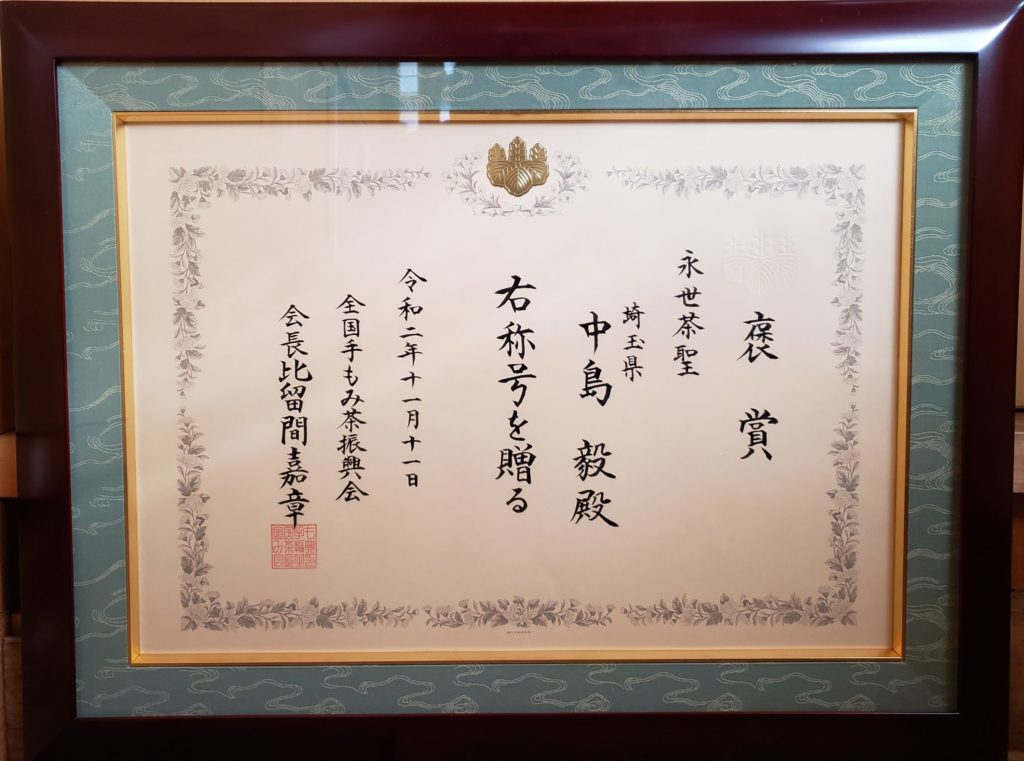 褒賞
永世茶聖
埼玉県
中島 毅殿
右称号を贈る
令和二年十一月十一日
全国手もみ茶振興会
会長比留間嘉章